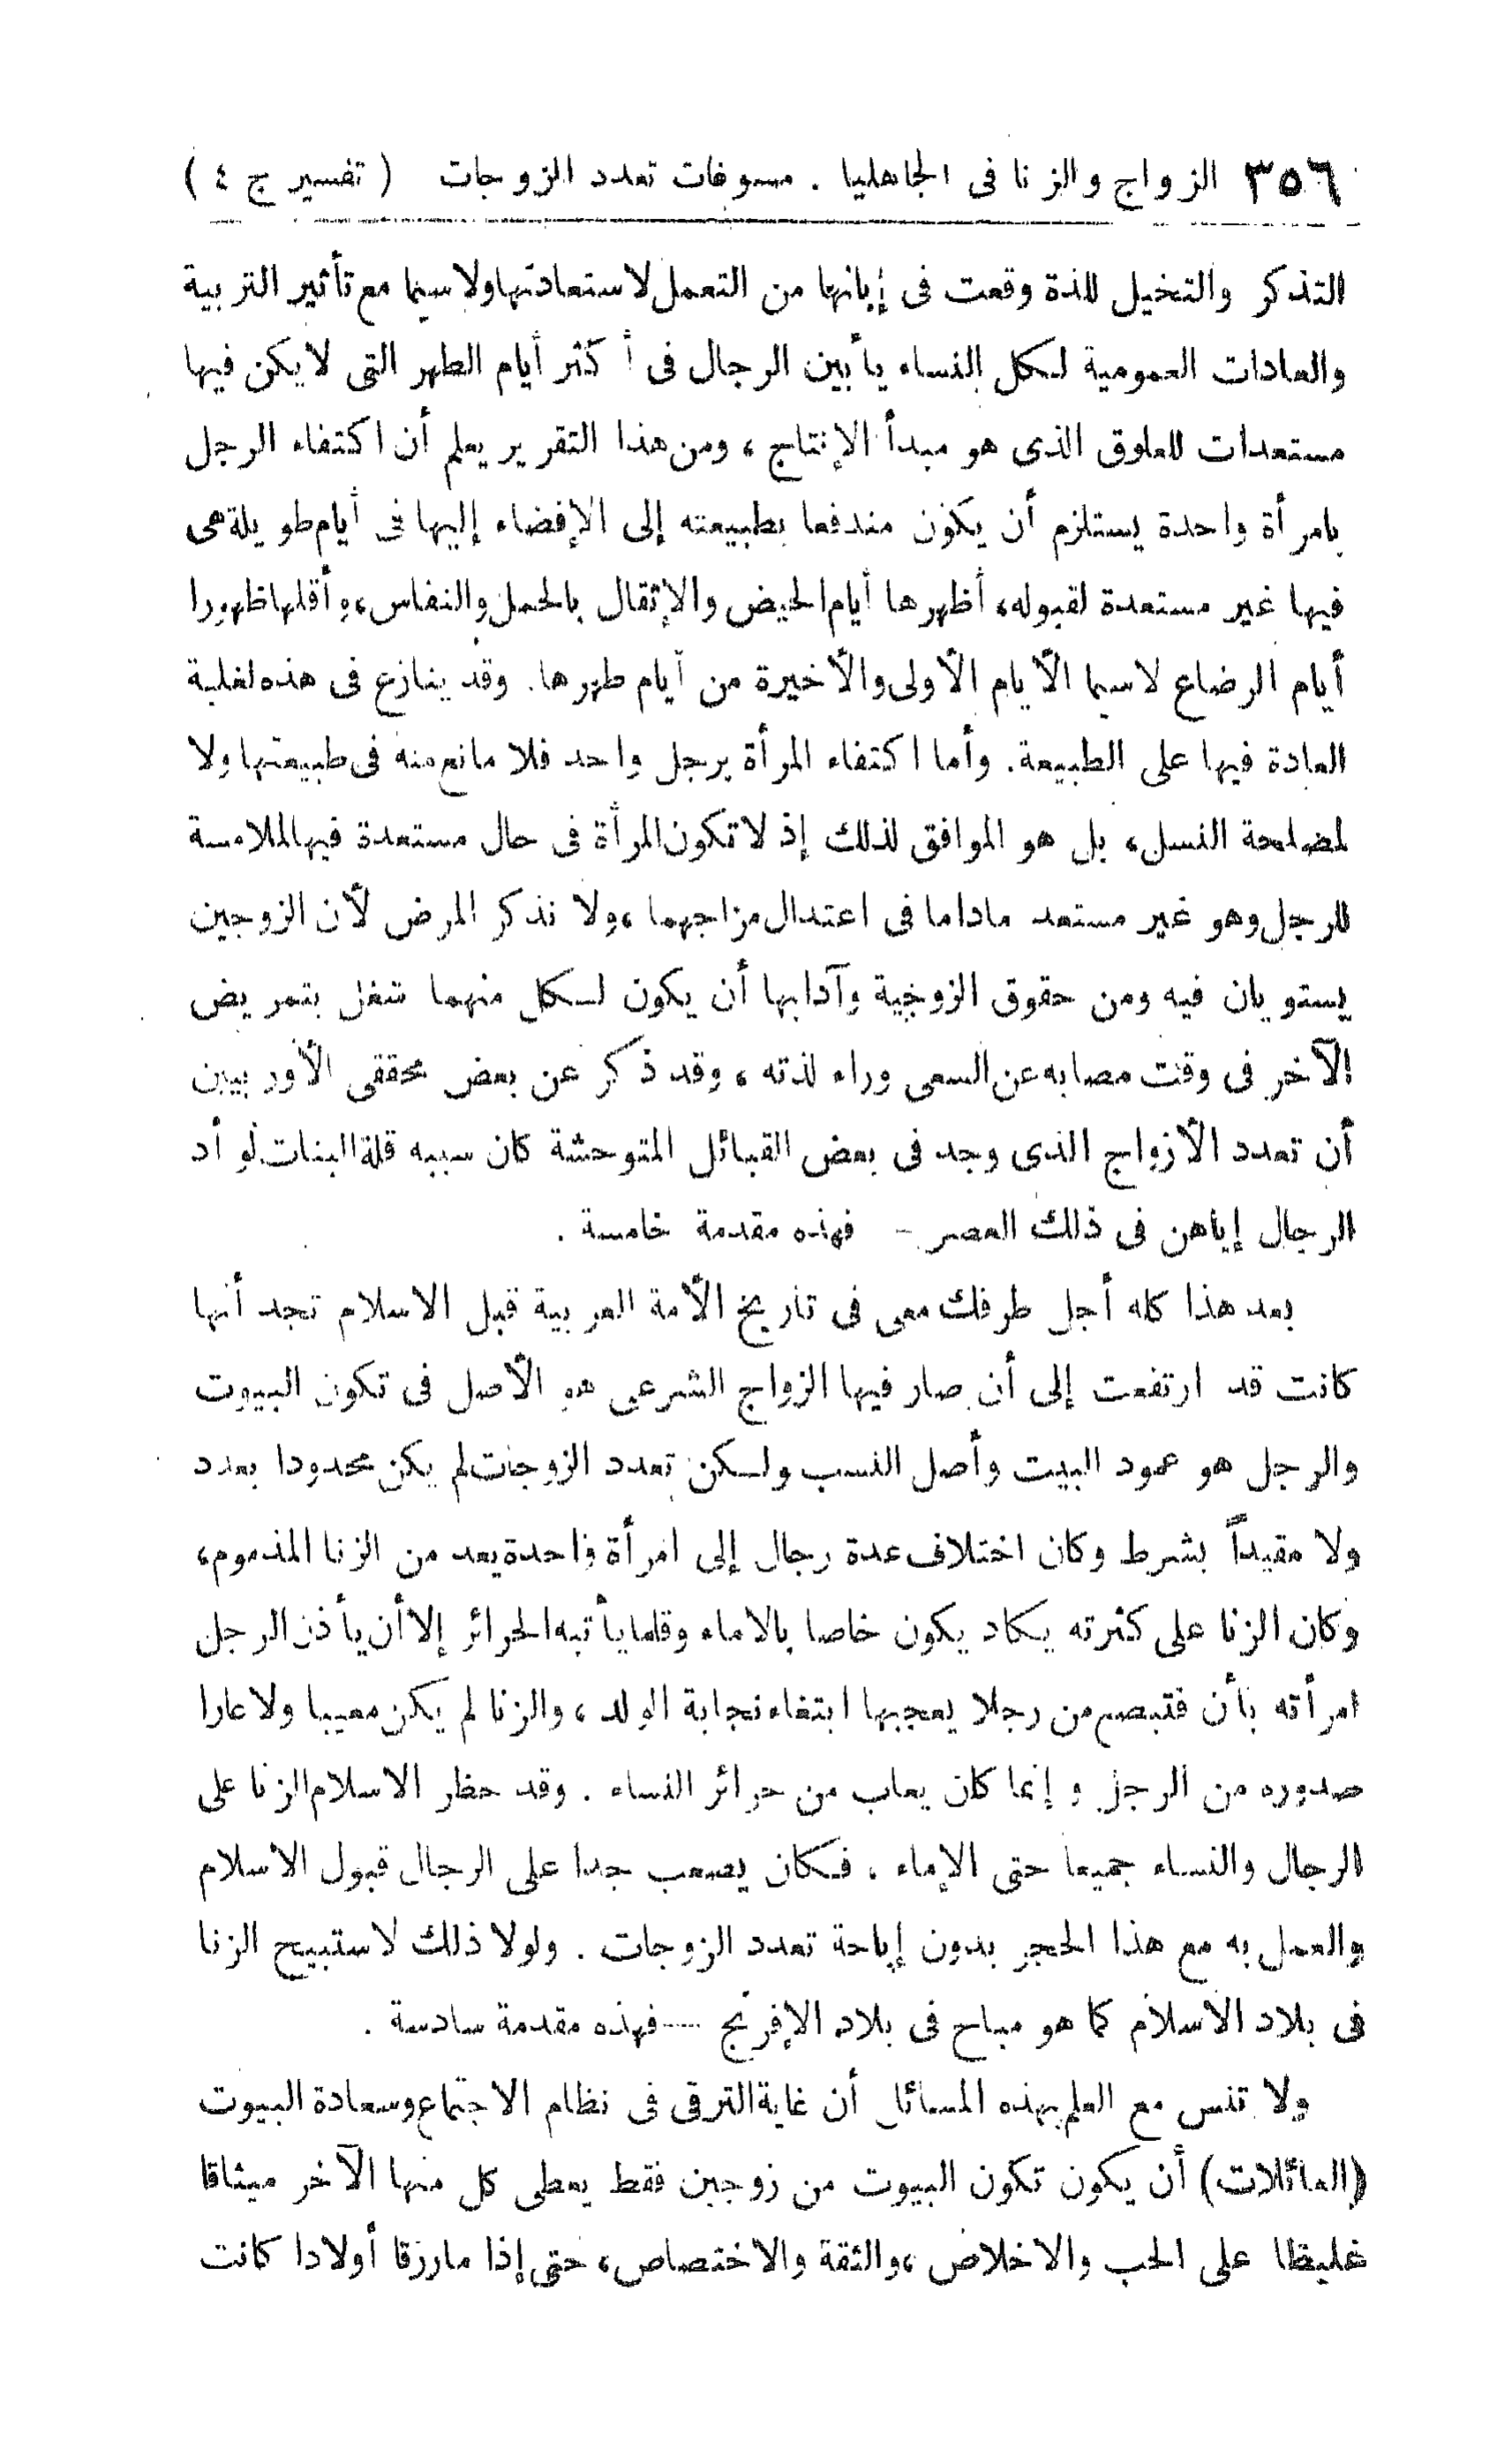 ٣٥٦ الزواج والزنا فى الجاهليا . مسوغات تعدد الزوجات ( تفسير ج ٤ )
التذكر والتخيل للذة وقعت فى إبانها من التعمل لاستعادتها ولا سيما مع تأثير التربية
والعادات العمومية لكل النساء يأبين الرجال فى أكثر أيام الطهر التى لا يكن فيها
مستعدات للعلوق الذى هو مبدأ الإنتاج ، ومن هذا التقرير يعلم أن اكتفاء الرجل
بامرأة واحدة يستلزم أن يكون مندفعا بطبيعته إلى الإفضاء إليها فى أيام طويلة هى
فيها غير مستعدة لقبوله ، أظهرها أيام الحيض والإثقال بالحمل والنفاس ، وأقلها ظهورا
أيام الرضاع لا سيما الأيام الأولى والأخيرة من أيام طهرها . وقد ينازع فى هذه لغلبة
العادة فيها على الطبيعة . وأما اكتفاء المرأة برجل واحد فلا مانع منه فى طبيعتها ولا
لمصلحة النسل ، بل هو الموافق لذلك إذ لا تكون المرأة فى حال مستعدة فيها لملامسة
للرجل وهو غير مستعد ماداما فى اعتدال مزاجهما ، ولا نذكر المرض لأن الزوجين
يستويان فيه ومن حقوق الزوجية وآدابها أن يكون لكل منهما شغل بتمريض
الآخر فى وقت مصابه عن السعى وراء لذته ، وقد ذكر عن بعض محققى الأوربيين
أن تعدد الأزواج الذى وجد فى بعض القبائل المتوحشة كان سببه قلة البنات لوأد
الرجال إياهن فى ذلك العصر - فهذه مقدمة خامسة .
بعد هذا كله أجل طرفك معى فى تاريخ الأمة العربية قبل الاسلام تجد أنها
كانت قد ارتفعت إلى أن صار فيها الزواج الشرعى هو الأصل فى تكون البيوت
والرجل هو عمود البيت وأصل النسب ولكن تعدد الزوجات لم يكن محدودا بعدد
ولا مقيداً بشرط وكان اختلاف عدة رجال إلى امرأة واحدة يعد من الزنا المذموم ،
وكان الزنا على كثرته يكاد يكون خاصا بالاماء وقلما يأتيه الحرائر إلا أن يأذن الرجل
امرأته بأن من رجلا يعجبها ابتغاء نجابة الولد ، والزنا لم يكن معيبا ولا عارا
صدوره من الرجل و إنما كان يعاب من حرائر النساء . وقد حظر الاسلام الزنا على
الرجال والنساء جميعا حتى الإماء ، فكان يصعب جدا على الرجال قبول الاسلام
والعمل به مع هذا الحجر بدون إباحة تعدد الزوجات . ولولا ذلك لاستبيح الزنا
فى بلاد الاسلام كما هو مباح فى بلاد الإفرنج -- فهذه مقدمة سادسة .
ولا تنس مع العلم بهذه المسائل أن غاية الترقى فى نظام الاجتماع وسعادة البيوت
(العائلات) أن يكون تكون البيوت من زوجين فقط يعطى كل منها الآخر ميثاقا
غليظا على الحب والاخلاص ، والثقة والاختصاص ، حتى إذا مارزقا أولادا كانت